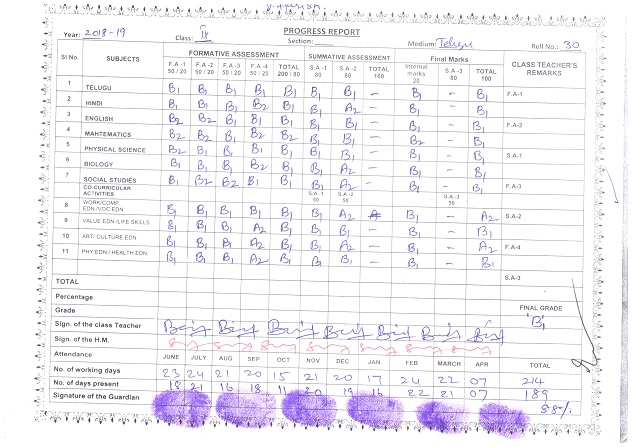 PROGRESS REPORT
Year: 2018-19 Class: IX Section: Medium: Telugu Roll No.: 30
Sl. No. SUBJECTS FORMATIVE ASSESSMENT SUMMATIVE ASSESSMENT Final Marks CLASS TEACHER'S REMARKS
F.A-1 50 / 20 F.A -2 50 / 20 F.A -3 50 / 20 F.A -4 50 / 20 TOTAL 200 / 80 S.A -1 80 S.A -2 80 TOTAL 160 Internal marks 20 S.A -3 80 TOTAL 100
1 TELUGU B1 B1 B1 B1 B1 B1 B1 - B1 - B1 F.A-1
2 HINDI B1 B1 B1 B2 B1 B1 A2 - B1 - B1
3 ENGLISH B2 B2 B1 B1 B1 B1 B1 - B1 - B1 F.A-2
4 MAHTEMATICS B2 B2 B1 B2 B2 B1 B1 - B2 - B1
5 PHYSICAL SCIENCE B2 B1 B1 B1 B1 B1 B1 - B1 - B1 S.A-1
6 BIOLOGY B1 B1 B1 B2 B1 B1 A2 - B1 - B1
7 SOCIAL STUDIES B1 B2 B2 B1 B1 B1 A2 - B1 - B1 F.A-3
CO-CURRICULAR ACTIVITIES S.A -1 50 S.A -2 50 S.A -3 50
8 WORK/COMP EDN /VOC EDN B1 B1 B1 B1 B1 B1 A2 B1 - A2 S.A-2
9 VALUE EDN /LIFE SKILLS B1 B1 B1 A2 B1 B1 B1 - B1 - B1
10 ART/ CULTURE EDN B1 B1 B1 A2 B1 B1 A2 - B1 - A2 F.A-4
11 PHY.EDN / HEALTH EDN B1 B1 B1 A2 B1 B1 B1 - B1 - B1
S.A-3
TOTAL
Percentage
Grade FINAL GRADE
'B1'
Sign. of the class Teacher
Sign. of the H.M.
Attendance JUNE JULY AUG SEP OCT NOV DEC JAN FEB MARCH APR TOTAL
No. of working days 23 24 21 20 15 21 20 17 24 22 07 214
No. of days present 18 21 16 18 11 20 19 16 22 21 07 189
Signature of the Guardian 88%